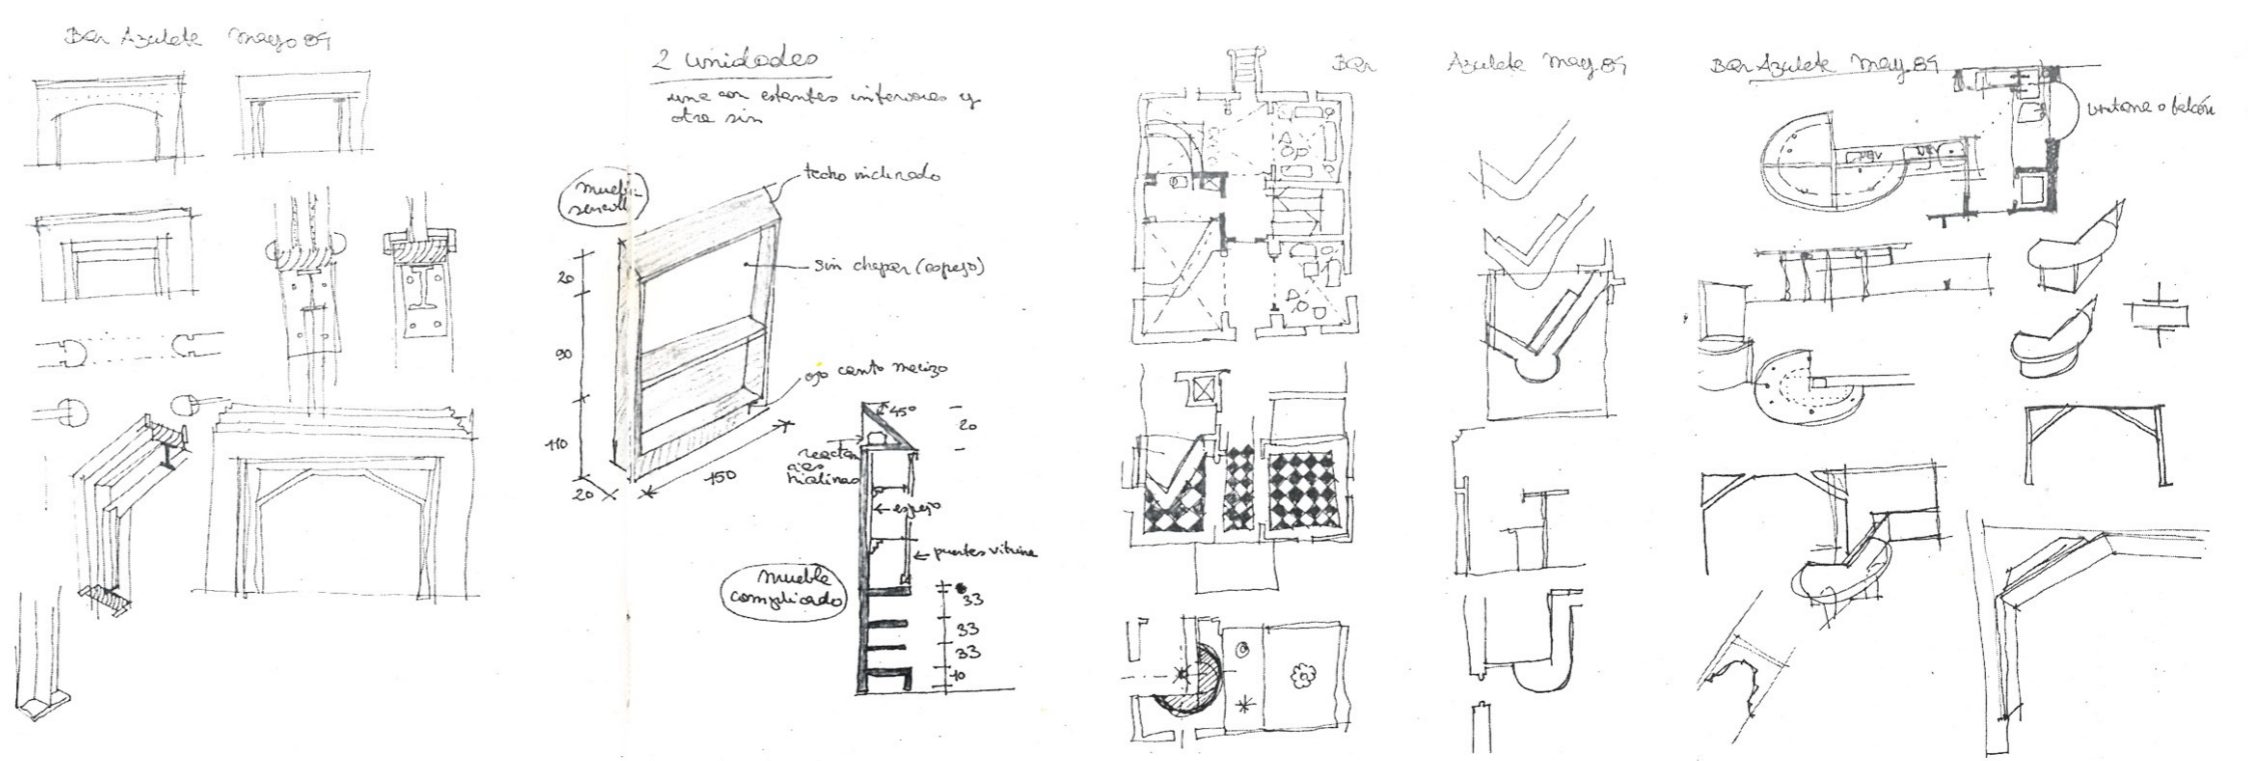 Bar Azulete Mayo 89
2 unidades
una con estantes inferiores y
otra sin
mueble
sencillo
techo inclinado
sin chapar (espejo)
ojo canto macizo
20
90
110
20
150
45º
20
reactan
cias
espejo
puertas vitrina
mueble
complicado
33
33
33
10
Bar Azulete May. 89
Bar Azulete May. 89
ventana o balcón